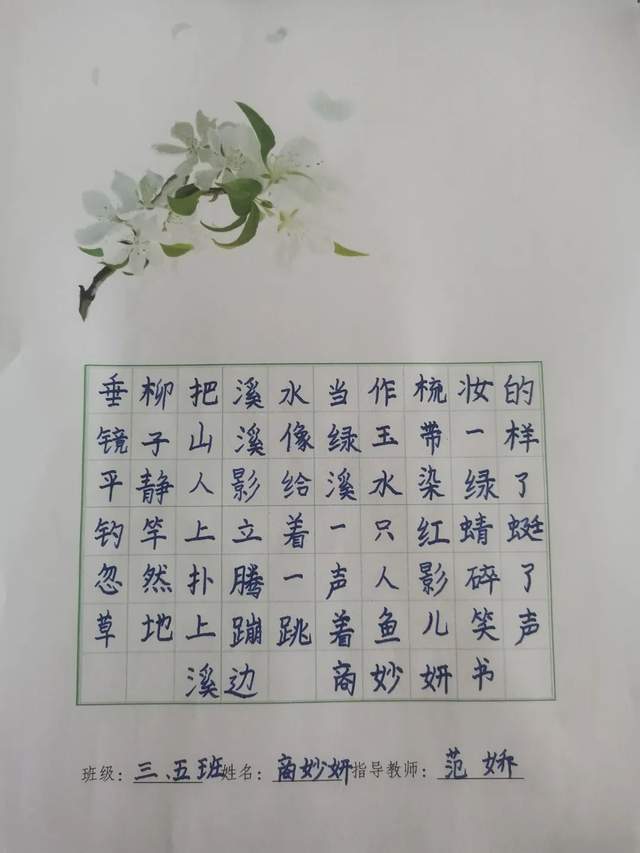 垂柳把溪水当作梳妆的
镜子山溪像绿玉带一样
平静人影给溪水染绿了
钓竿上立着一只红蜻蜓
忽然扑腾一声人影碎了
草地上蹦跳着鱼儿笑声
溪边 商妙妍书
班级：三、五班 姓名：商妙妍 指导教师：范娇